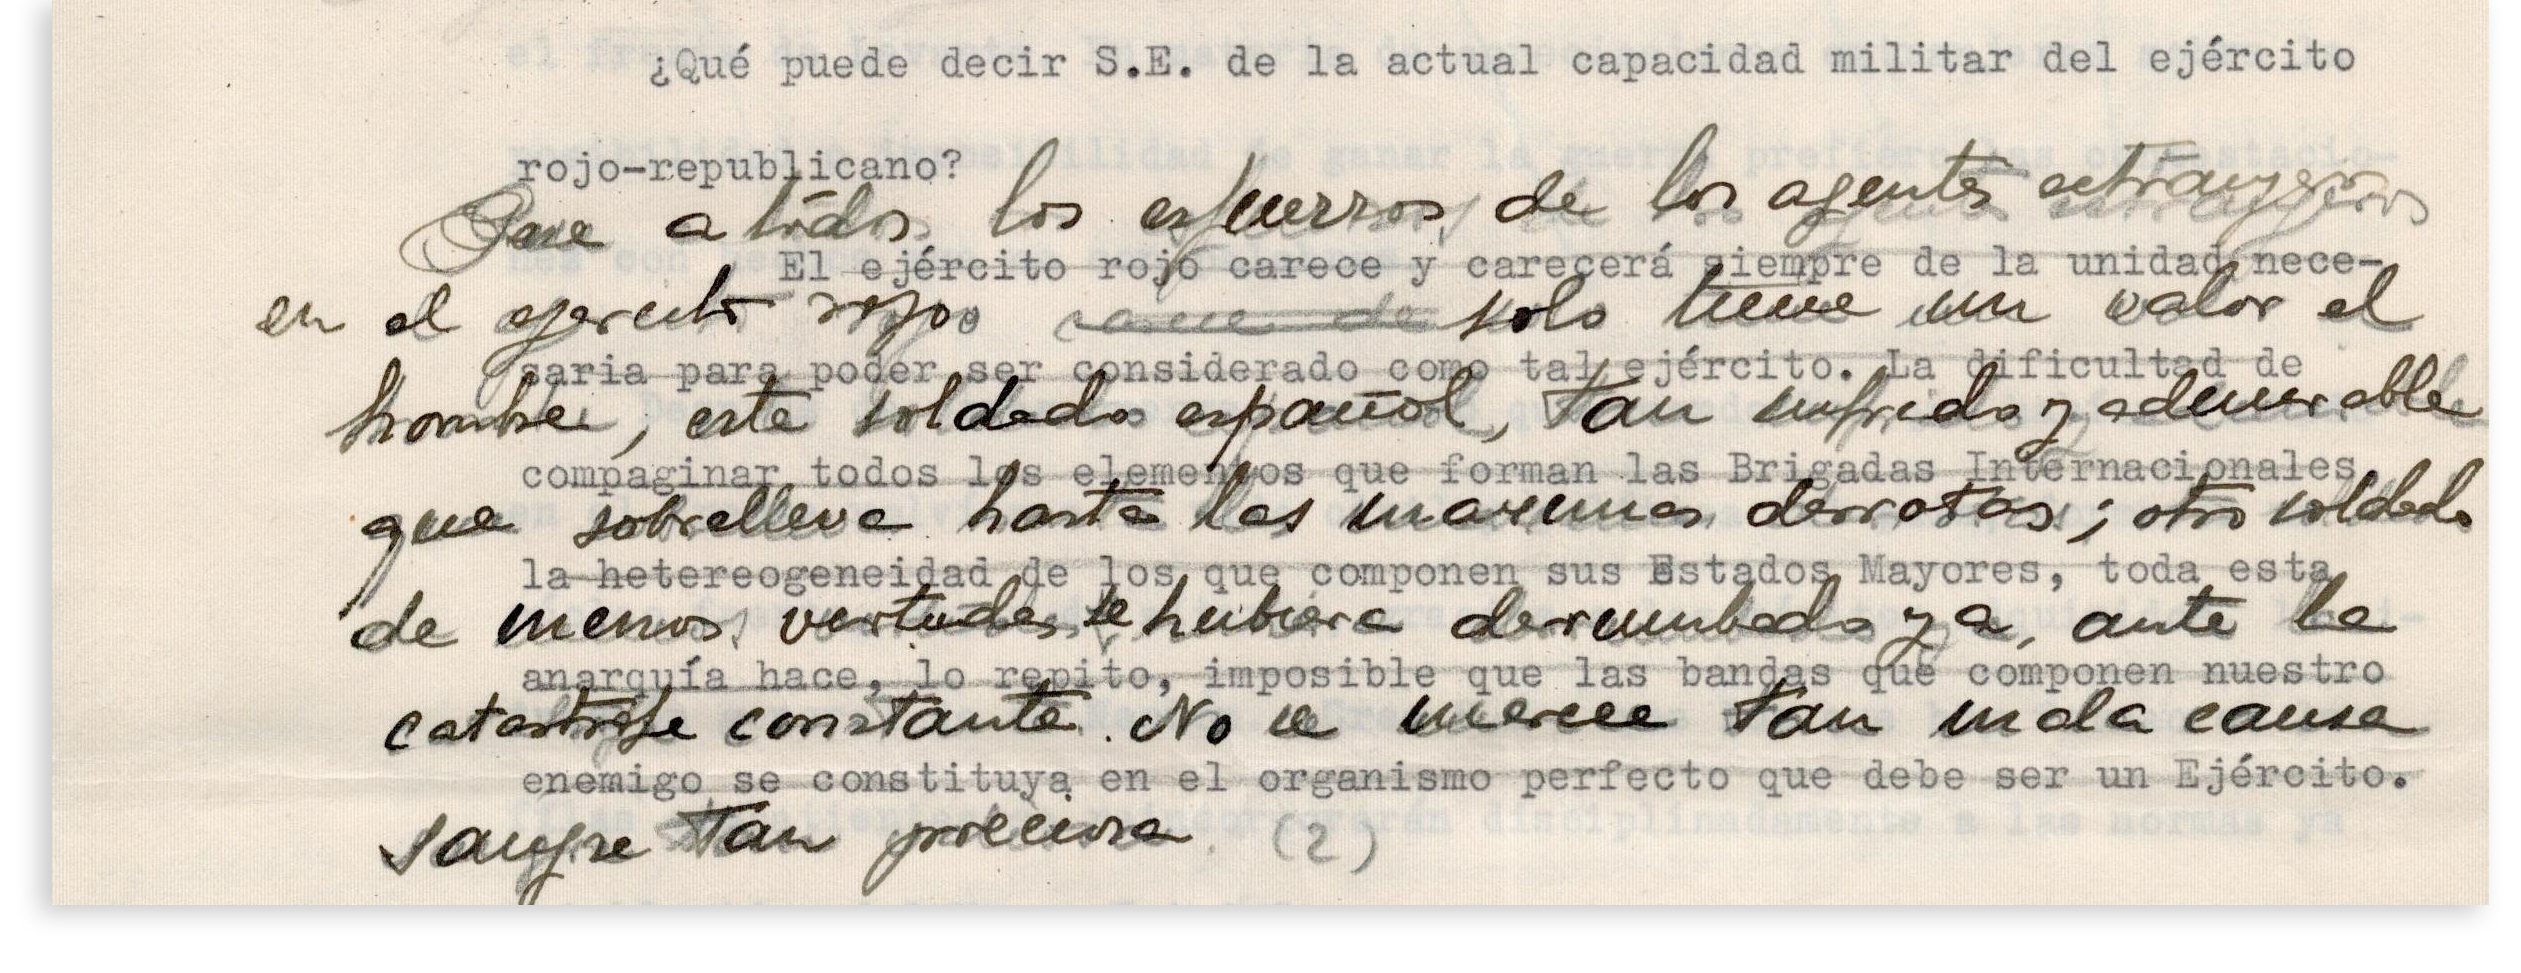 ¿Qué puede decir S.E. de la actual capacidad militar del ejército
rojo-republicano?
Que a todos los esfuerzos de los agentes extranjeros
El ejército rojo carece y carecerá siempre de la unidad nece-
en el ejercito rojo carece de solo tiene un valor el
saria para poder ser considerado como tal ejército. La dificultad de
hombre, este soldado español, tan sufrido y admirable
compaginar todos los elementos que forman las Brigadas Internacionales
que sobrelleva hasta las maximas derrotas; otro soldado
la hetereogeneidad de los que componen sus Estados Mayores, toda esta
de menos virtudes se hubiera derrumbado ya, ante la
anarquía hace, lo repito, imposible que las bandas que componen nuestro
catastrofe constante. No se merece tan mala causa
enemigo se constituya en el organismo perfecto que debe ser un Ejército.
sangre tan preciosa. (2)